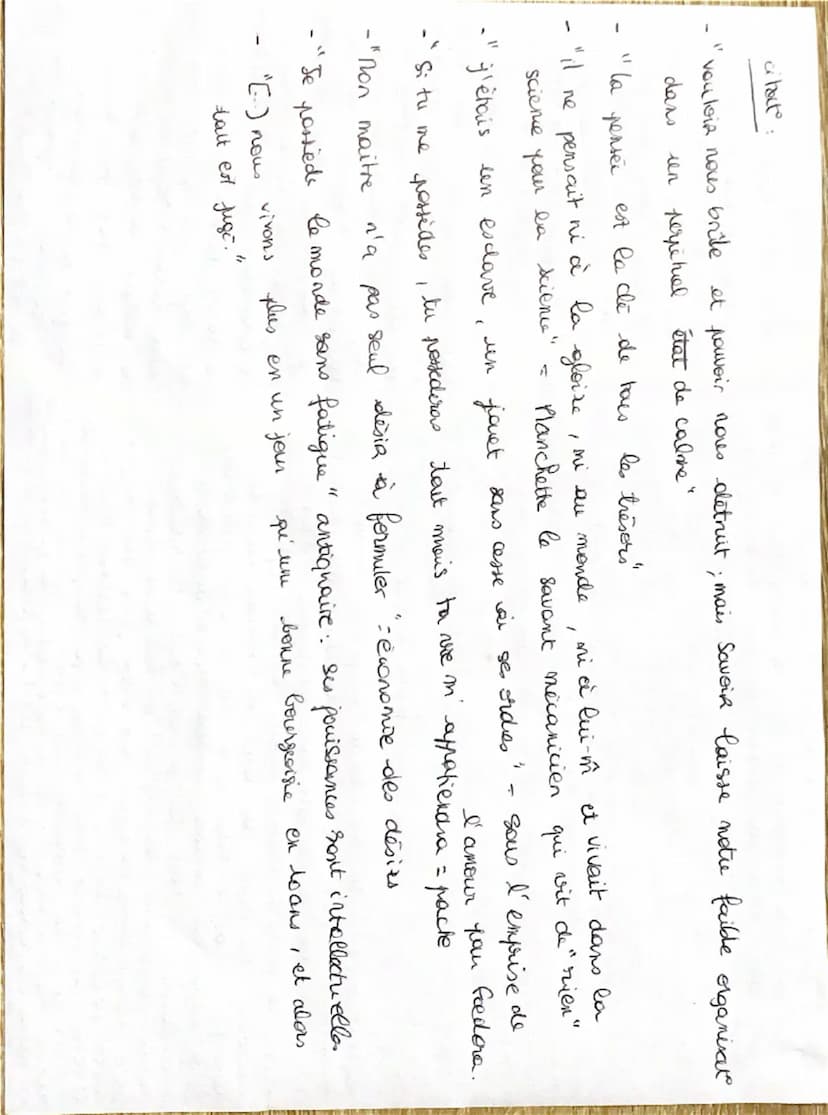 citat° :
- "vouloir nous brûle et pouvoir nous détruit ; mais savoir laisse notre faible organisat°
dans un perpétuel état de calme"
- "la pensée est la clé de tous les trésors"
- "il ne pensait ni à la gloire, ni au monde, ni à lui-m̂ et vivait dans la
science pour la science" = Planchette le savant mécanicien qui vit de "rien"
- "j'étais un esclave, un jouet sans cesse à ses ordres" = sous l'emprise de
l'amour pour Foedora.
- "Si tu me possèdes, tu possèderas tout mais ta vie m'appartiendra = pacte
- "Mon maître n'a pas seul désir à formuler" = économie des désirs
- "Je possède le monde sans fatigue" antiquaire : ses jouissances sont intellectuelles
- "[...) nous vivons plus en un jour qu'une bonne bourgeoise en 10 ans, et alors
tout est jugé."